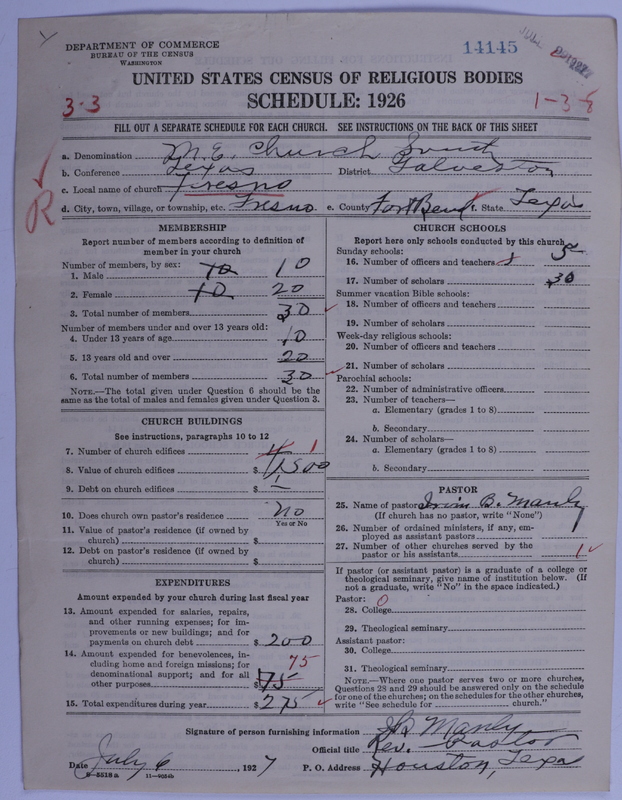 DEPARTMENT OF COMMERCE
BUREAU OF THE CENSUS
WASHINGTON
14145
UNITED STATES CENSUS OF RELIGIOUS BODIES
3-3 SCHEDULE: 1926 1-3-8
FILL OUT A SEPARATE SCHEDULE FOR EACH CHURCH. SEE INSTRUCTIONS ON THE BACK OF THIS SHEET
a. Denomination M. E. Church South
b. Conference Texas District Galveston
c. Local name of church Fresno
d. City, town, village, or township, etc. Fresno e. County Fort Bend f. State Texas
R
MEMBERSHIP
Report number of members according to definition of
member in your church
Number of members, by sex:
1. Male 10 10
2. Female 10 20
3. Total number of members 30
Number of members under and over 13 years old:
4. Under 13 years of age 10
5. 13 years old and over 20
6. Total number of members 30
NOTE.—The total given under Question 6 should be the
same as the total of males and females given under Question 3.
CHURCH BUILDINGS
See instructions, paragraphs 10 to 12
7. Number of church edifices 1
8. Value of church edifices $ 1500
9. Debt on church edifices $
10. Does church own pastor's residence? No
Yes or No
11. Value of pastor's residence (if owned by
church) $
12. Debt on pastor's residence (if owned by
church) $
EXPENDITURES
Amount expended by your church during last fiscal year
13. Amount expended for salaries, repairs,
and other running expenses; for im-
provements or new buildings; and for
payments on church debt $ 200
14. Amount expended for benevolences, in-
cluding home and foreign missions; for 75
denominational support; and for all
other purposes $ 75
15. Total expenditures during year $ 275
CHURCH SCHOOLS
Report here only schools conducted by this church
Sunday schools:
16. Number of officers and teachers 5
17. Number of scholars 30
Summer vacation Bible schools:
18. Number of officers and teachers
19. Number of scholars
Week-day religious schools:
20. Number of officers and teachers
21. Number of scholars
Parochial schools:
22. Number of administrative officers
23. Number of teachers—
a. Elementary (grades 1 to 8)
b. Secondary
24. Number of scholars—
a. Elementary (grades 1 to 8)
b. Secondary
PASTOR
25. Name of pastor B. Manly
(If church has no pastor, write "None")
26. Number of ordained ministers, if any, em-
ployed as assistant pastors
27. Number of other churches served by the
pastor or his assistants 1
If pastor (or assistant pastor) is a graduate of a college or
theological seminary, give name of institution below. (If
not a graduate, write "No" in the space indicated.)
Pastor: 0
28. College
29. Theological seminary
Assistant pastor:
30. College
31. Theological seminary
NOTE.—Where one pastor serves two or more churches,
Questions 28 and 29 should be answered only on the schedule
for one of the churches; on the schedules for the other churches,
write "See schedule for church."
Signature of person furnishing information Manly
Official title Rev. Pastor
Date July 6, 1927 P. O. Address Houston, Texas
8-5518 a 11-9054b